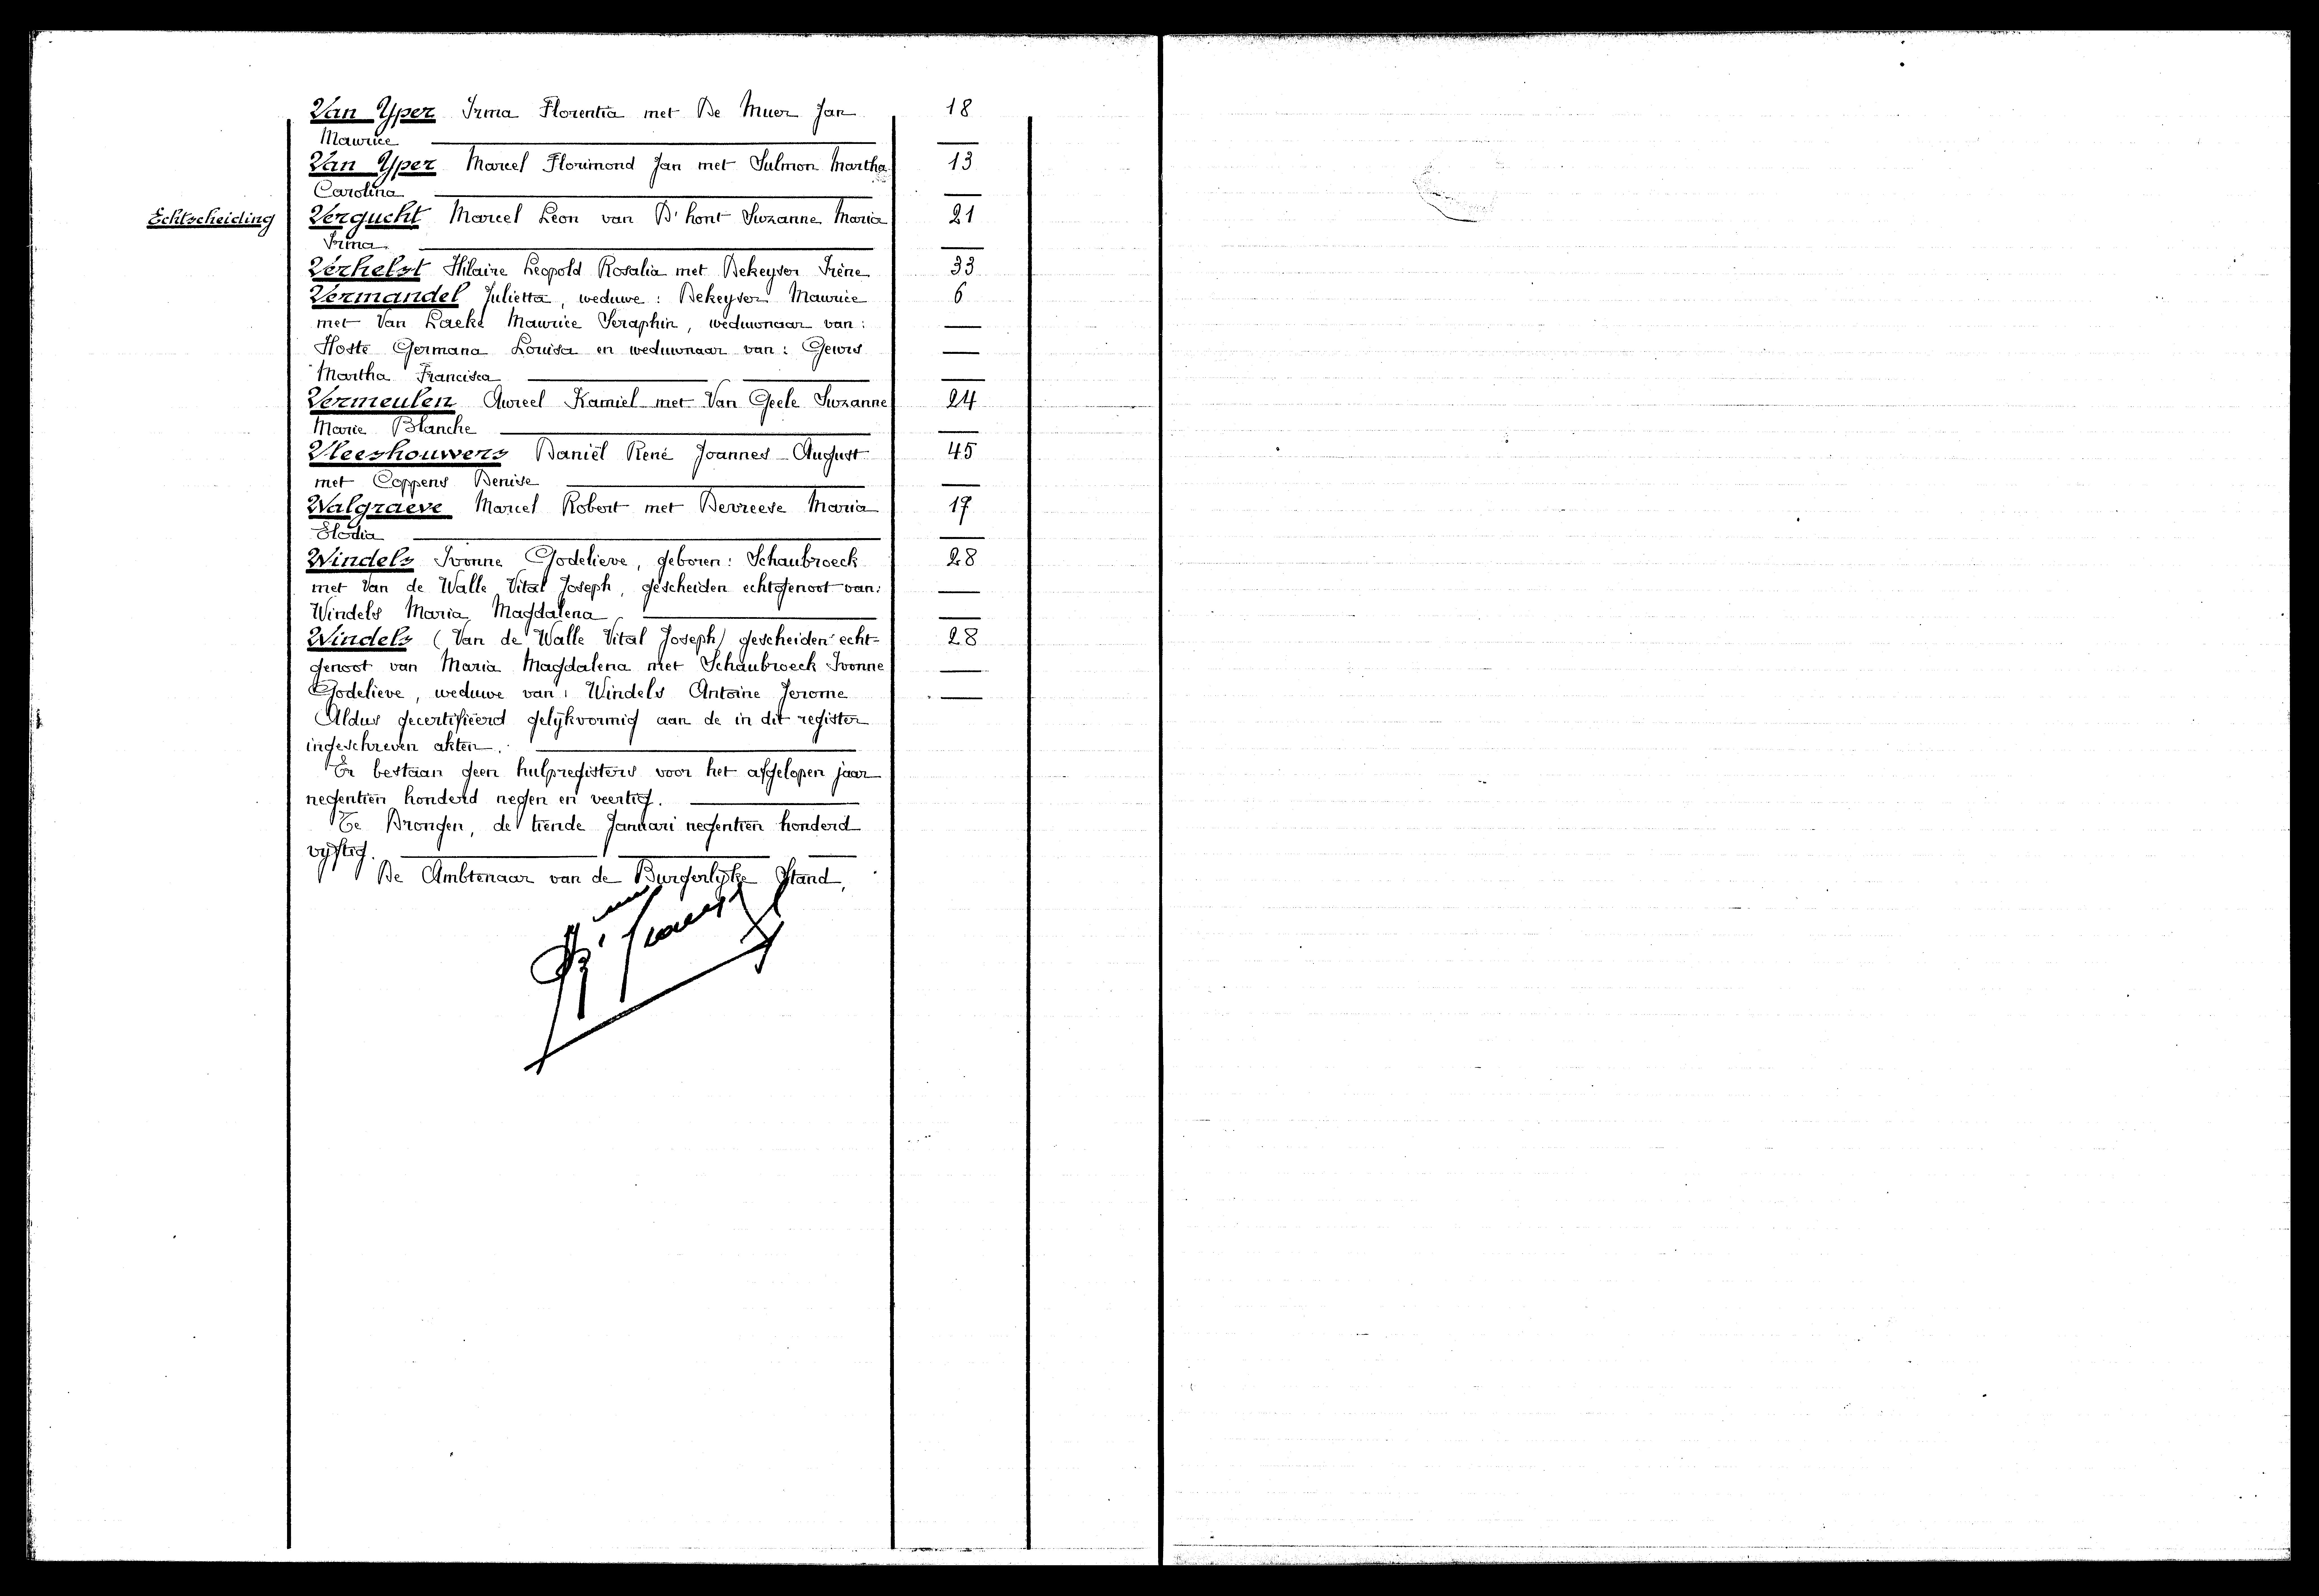 Van Yper Irma Florentia met De Muer Jan 18
Maurice
Van Yper Marcel Florimond Jan met Sulmon Martha 13
Carolina
Echtscheiding Vergucht Marcel Leon van D'hont Suzanne Maria 21
Irma
Verhelst Hilaire Leopold Rosalia met Dekeyser Irène 33
Vermandel Julietta, weduwe: Dekeyser Maurice 6
met Van Laeke Maurice Seraphin, weduwnaar van:
Hoste Germana Louisa en weduwnaar van: Gevers
Martha Francisca
Vermeulen Aureel Kamiel met Van Geele Suzanne 24
Marie Blanche
Vleeshouwers Daniël René Joannes August 45
met Coppens Denise
Walgraeve Marcel Robert met Devreese Maria 17
Elodia
Windels Ivonne Godelieve, geboren: Schaubroeck 28
met Van de Walle Vital Joseph, gescheiden echtgenoot van:
Windels Maria Magdalena
Windels (Van de Walle Vital Joseph) gescheiden echt- 28
genoot van Maria Magdalena met Schaubroeck Ivonne
Godelieve, weduwe van: Windels Antoine Jerome
Aldus gecertifieerd gelijkvormig aan de in dit register
ingeschreven akten.
Er bestaan geen hulpregisters voor het afgelopen jaar
negentien honderd negen en veertig.
Te Drongen, de tiende Januari negentien honderd
vijftig.
De Ambtenaar van de Burgerlijke Stand,